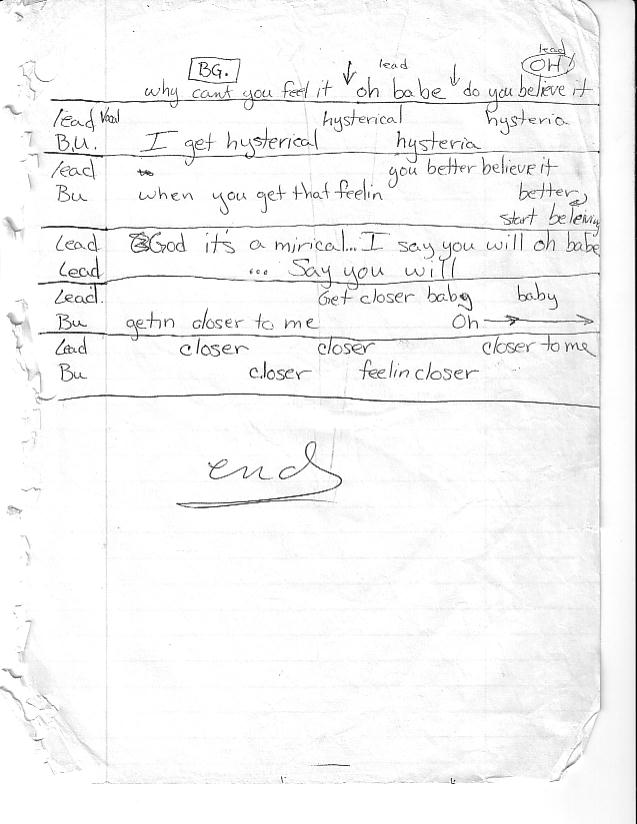 lead
BG. lead OH!
why cant you feel it ↓ oh babe ↓ do you believe it
lead Vocal hysterical hysteria
B.U. I get hysterical hysteria
lead you better believe it
Bu when you get that feelin better
start beleiving
Lead God it's a mirical... I say you will oh babe
Lead ... Say you will
Lead. Get closer baby baby
Bu getin closer to me Oh →→
Lead closer closer closer to me
Bu closer feelin closer
end